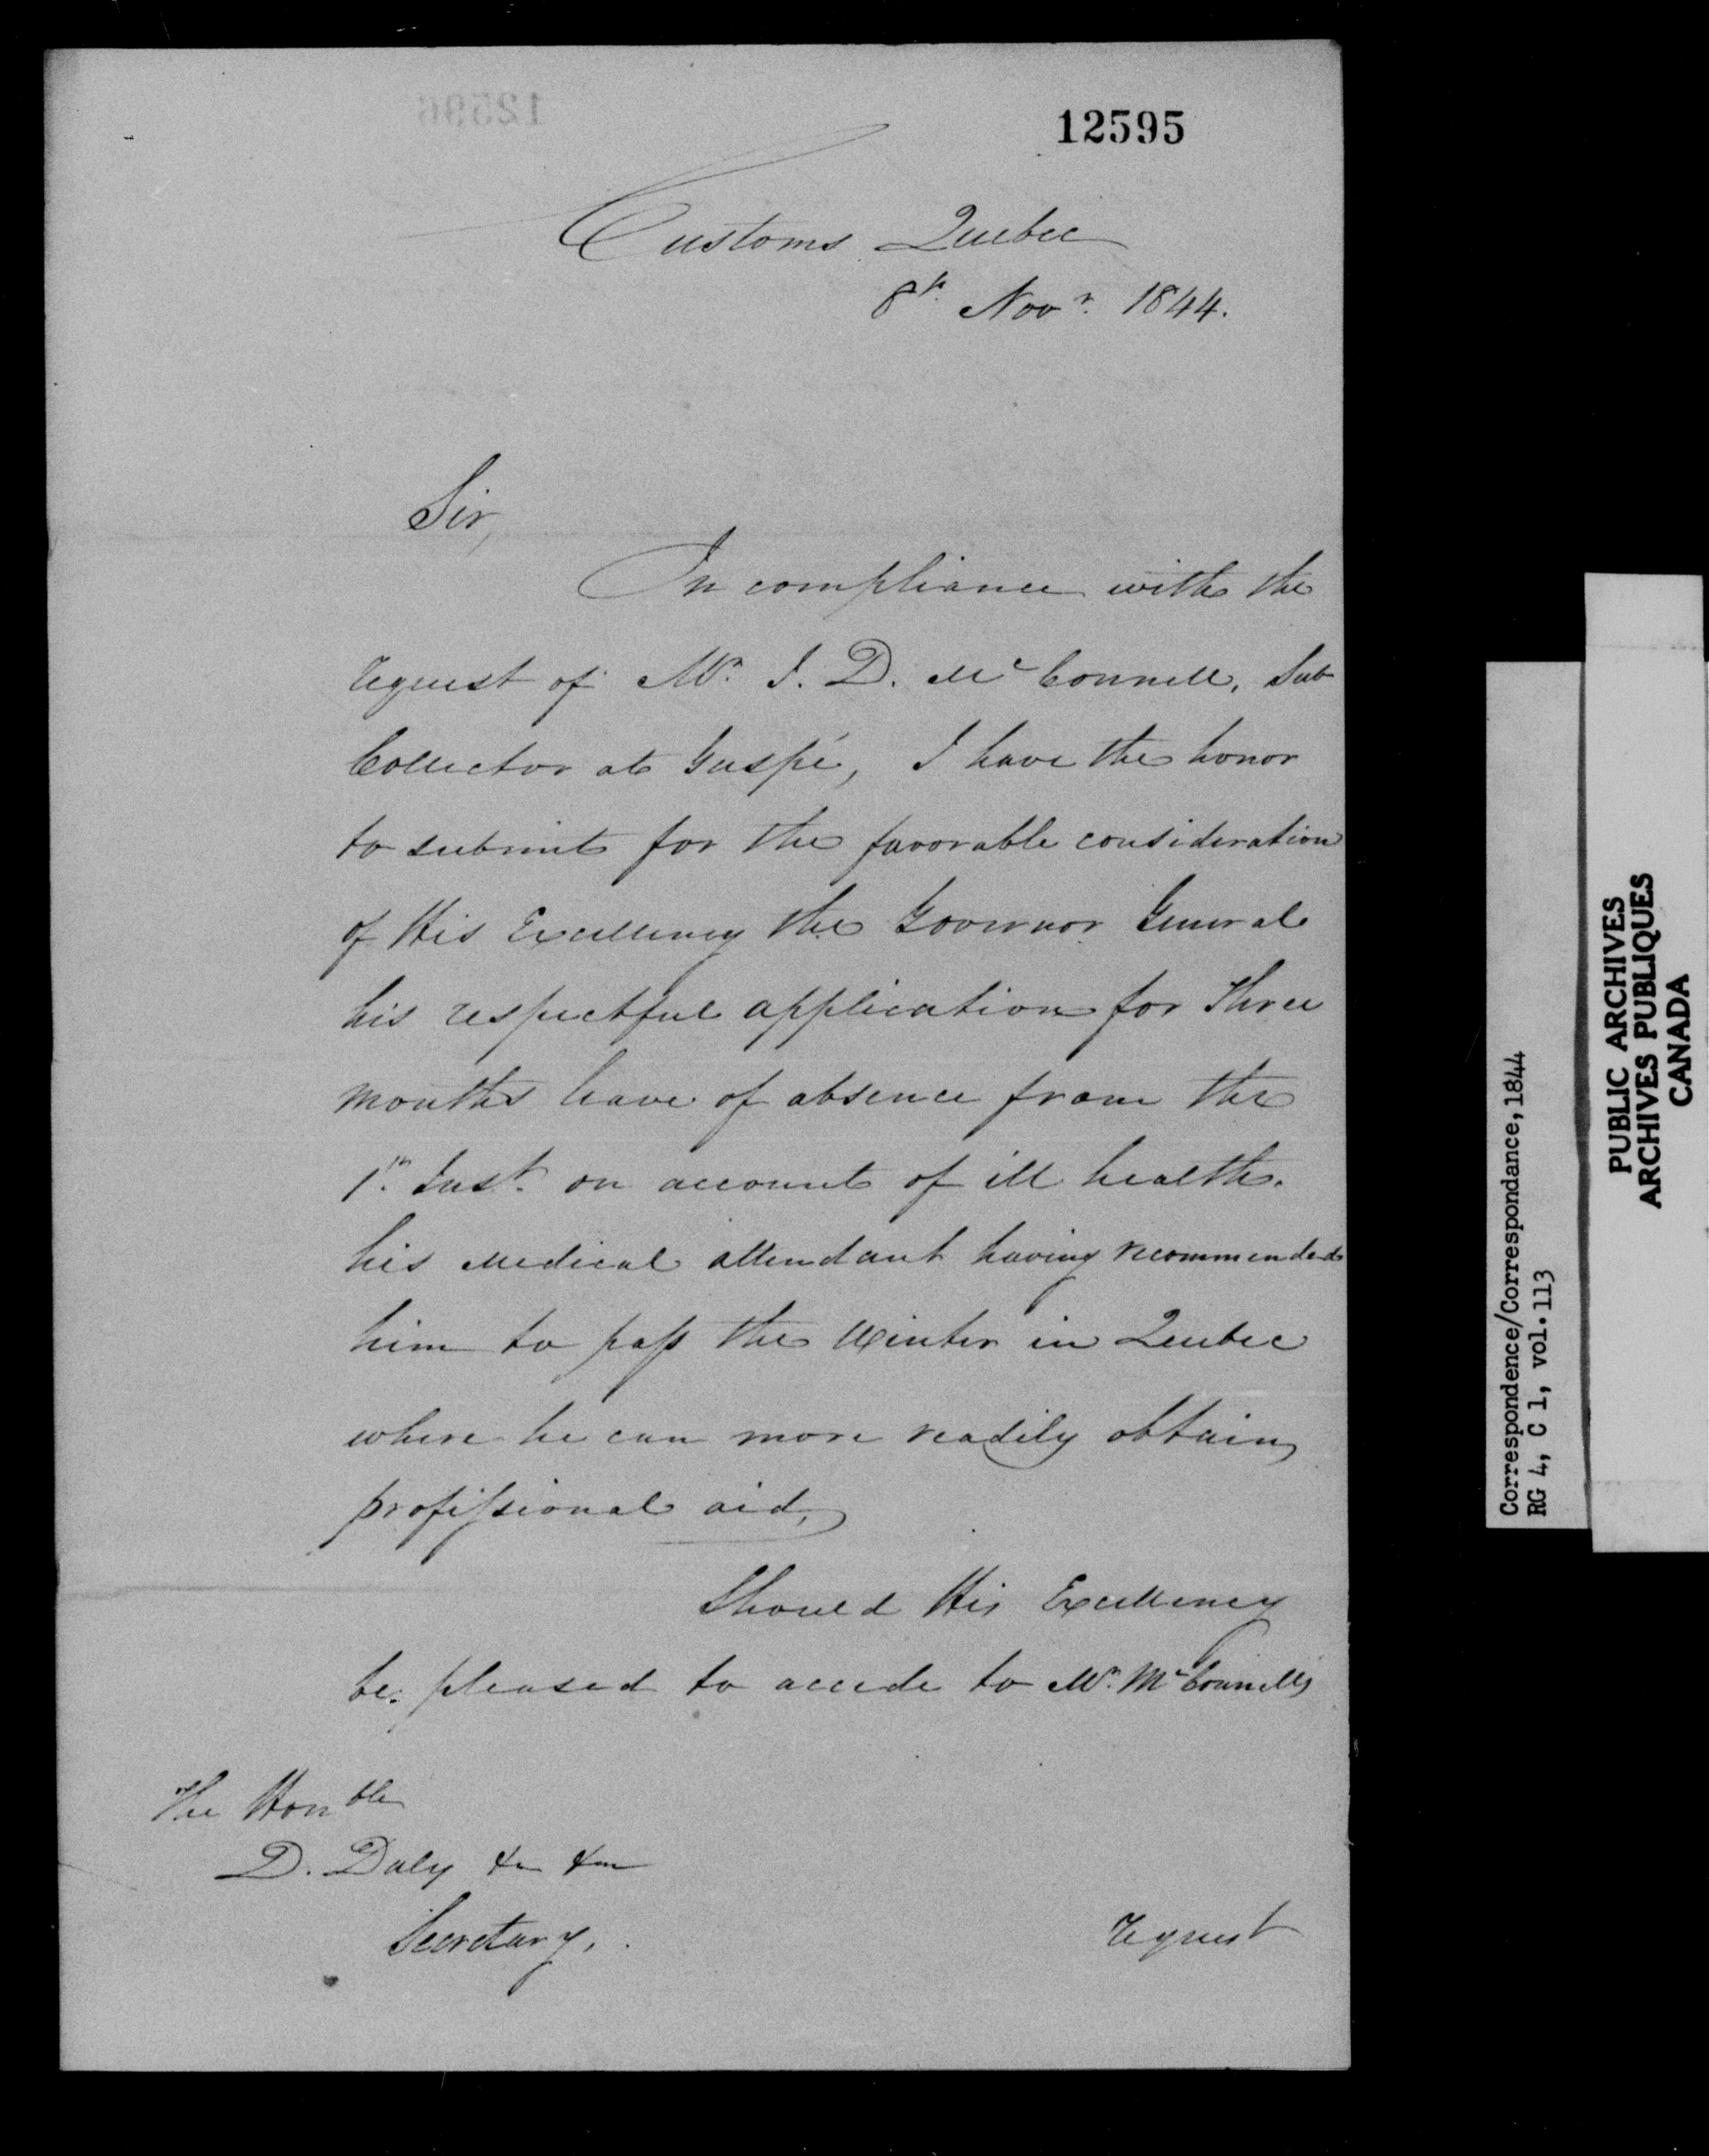 12595
Customs Quebec
8th Novr. 1844.
Sir,
In compliance with the
request of Mr. J. D. McConnell, Sub
Collector at Gaspé, I have the honor
to submit for the favorable consideration
of His Excellency the Governor General
his respectful application for three
months leave of absence from the
1st. Inst. on account of ill health.
his Medical attendant having recommended
him to pass the Winter in Quebec
where he can more readily obtain
professional aid,
Should His Excellency
be pleased to accede to Mr. McConnell's
The Honble
D. Daly &c &c
Secretary.
request
Correspondence/Correspondance, 1844
RG 4, C 1, vol. 113
PUBLIC ARCHIVES
ARCHIVES PUBLIQUES
CANADA